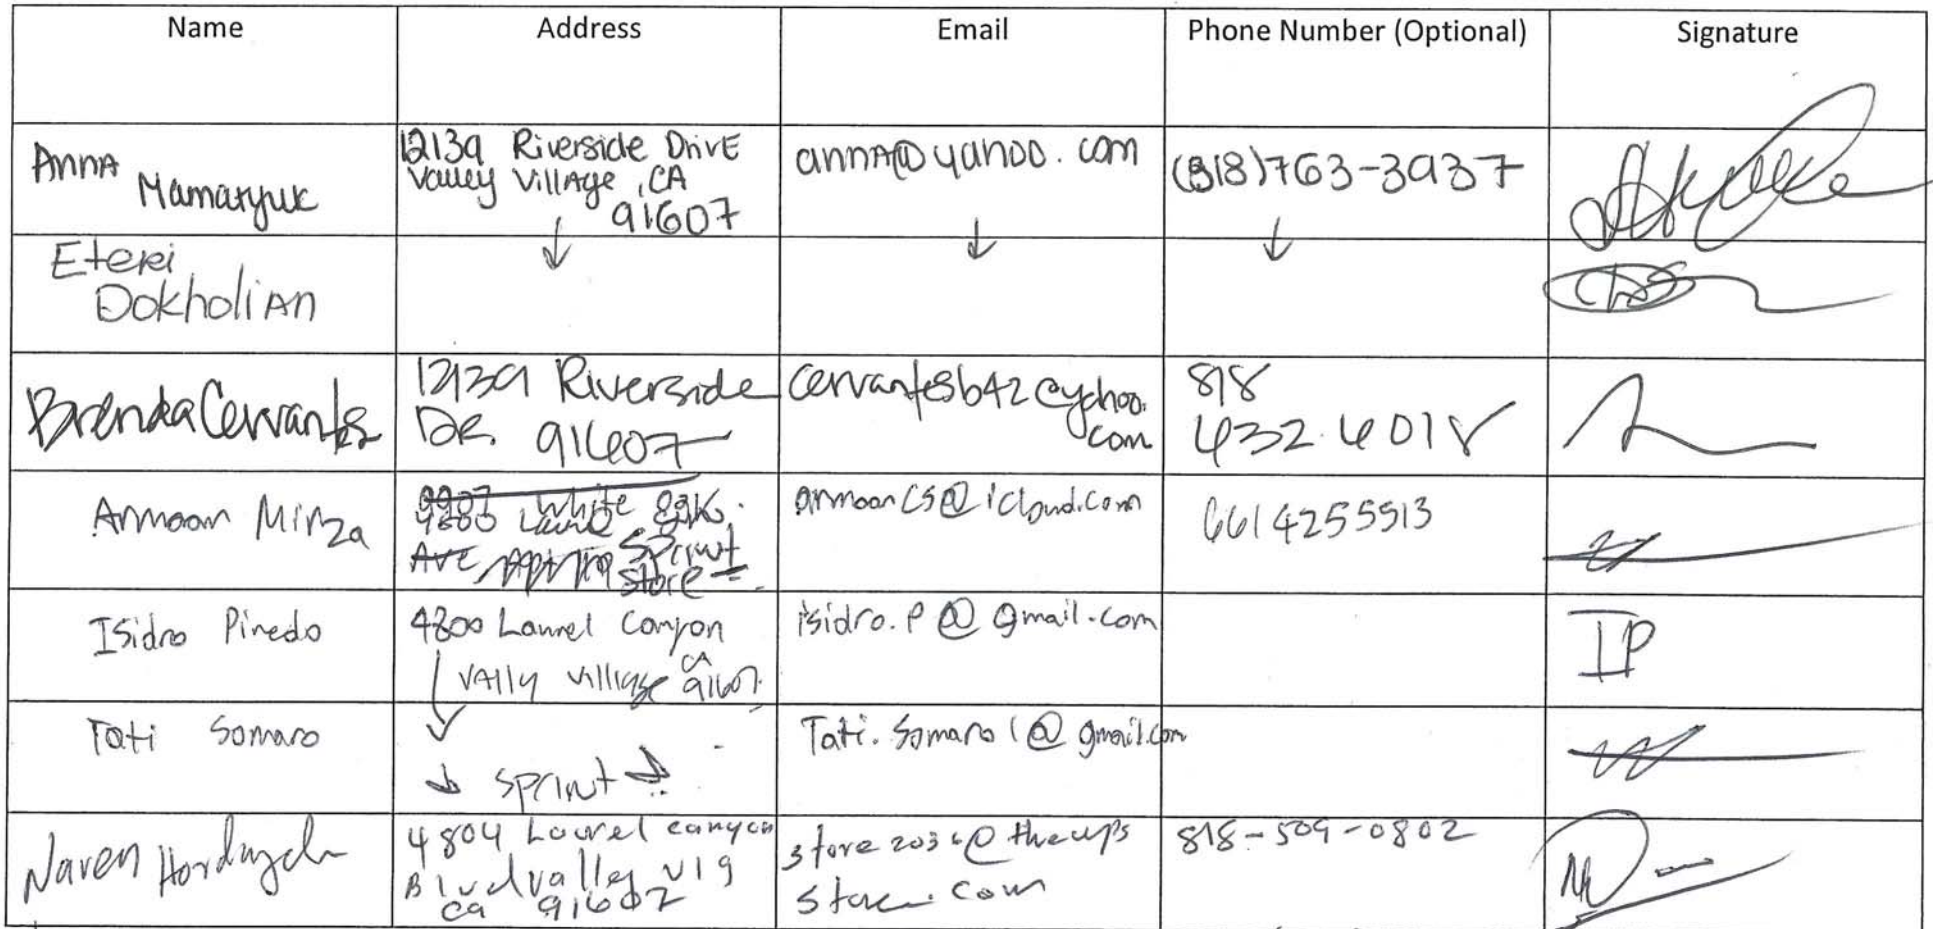 Name Address Email Phone Number (Optional) Signature
Anna
Mamatyuk
12139 Riverside Drive
Valley Village, CA
91607
anna@yahoo.com
(818)763-3937
Eteri
Dokholian
Brenda Cervantes
12139 Riverside
DR. 91607
cervantesb42@yahoo.
com
818
432.4018
Armoan Mirza
9907 White Oak
4800 Laurel
Ave Sprint
store
armoancs@icloud.com
6614255513
Isidro Pinedo
4800 Laurel Canyon
Vally Village CA
91607
isidro.p@gmail.com
IP
Tati Somaro
Sprint
Tati.Somaro1@gmail.com
Naren
4804 Laurel canyon
Blvd valley vlg
ca 91607
store2036@theups
store.com
818-509-0802